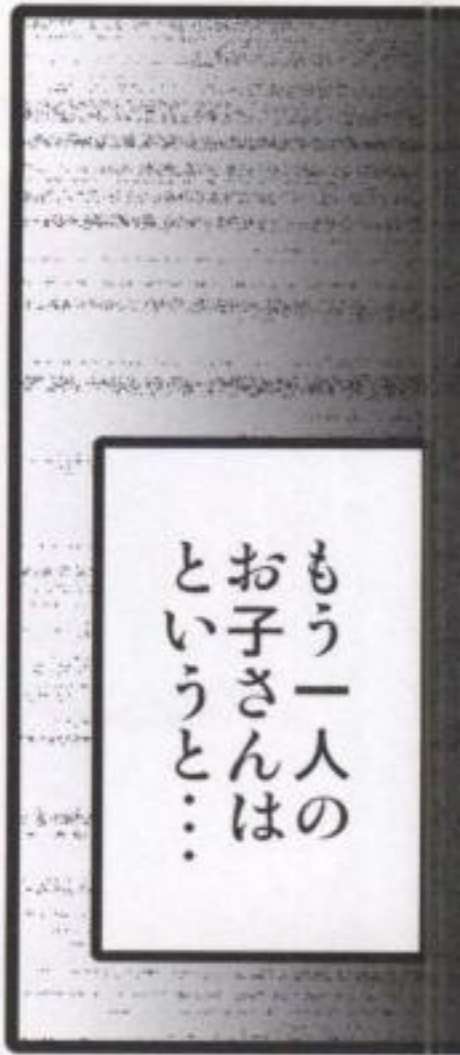 もう一人の
お子さんは
というと・・・